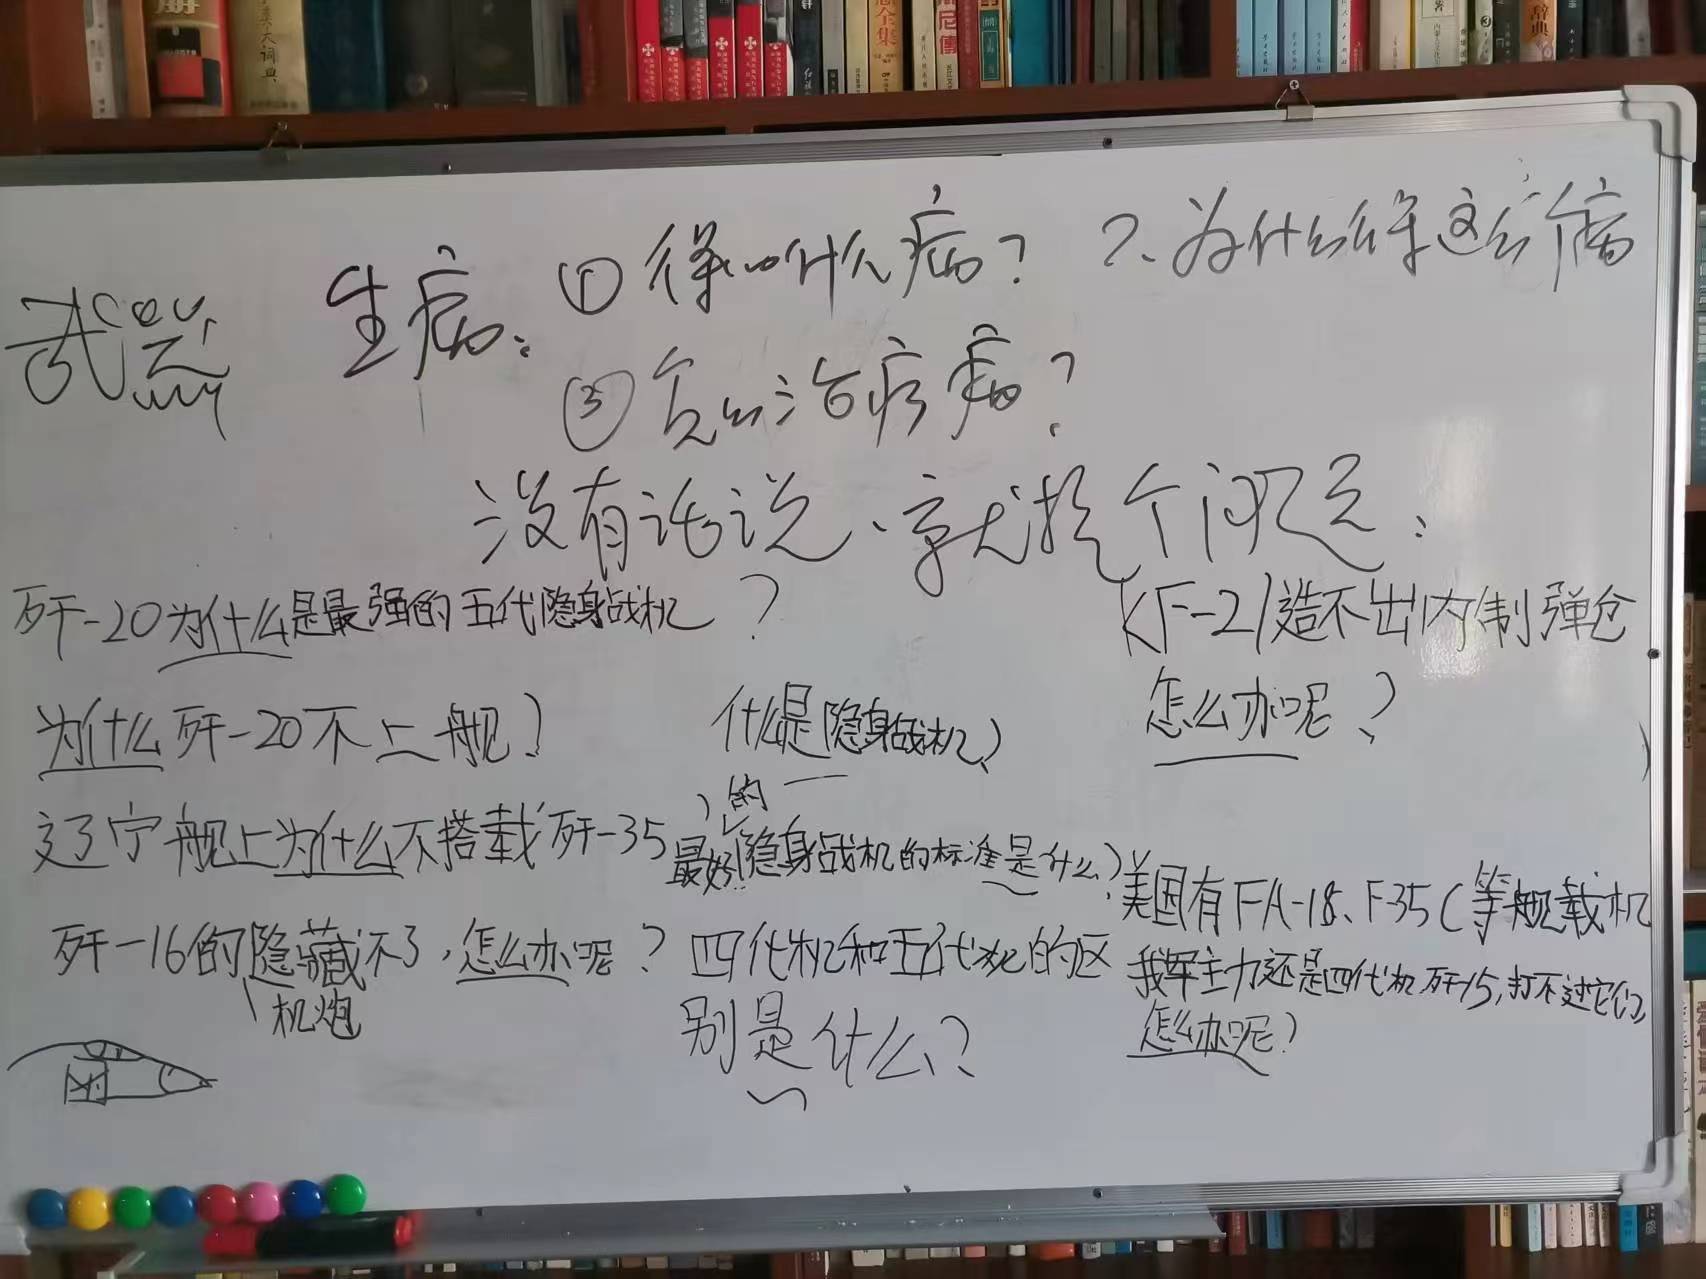 武器
生病: ① 得什么病? 2、为什么得这个病
③ 怎么治疗病?
没有话说、就提个问题:
歼-20为什么是最强的五代隐身战机?
为什么歼-20不上舰?
辽宁舰上为什么不搭载歼-35
歼-16的隐藏不了,怎么办呢?
机炮
什么是隐身战机?
的
最好隐身战机的标准是什么?
四代机和五代机的区
别是什么?
KF-21造不出内制弹仓
怎么办呢?
美国有FA-18、F-35C等舰载机
我军主力还是四代机歼15,打不过它们,
怎么办呢?
大词典
辞典